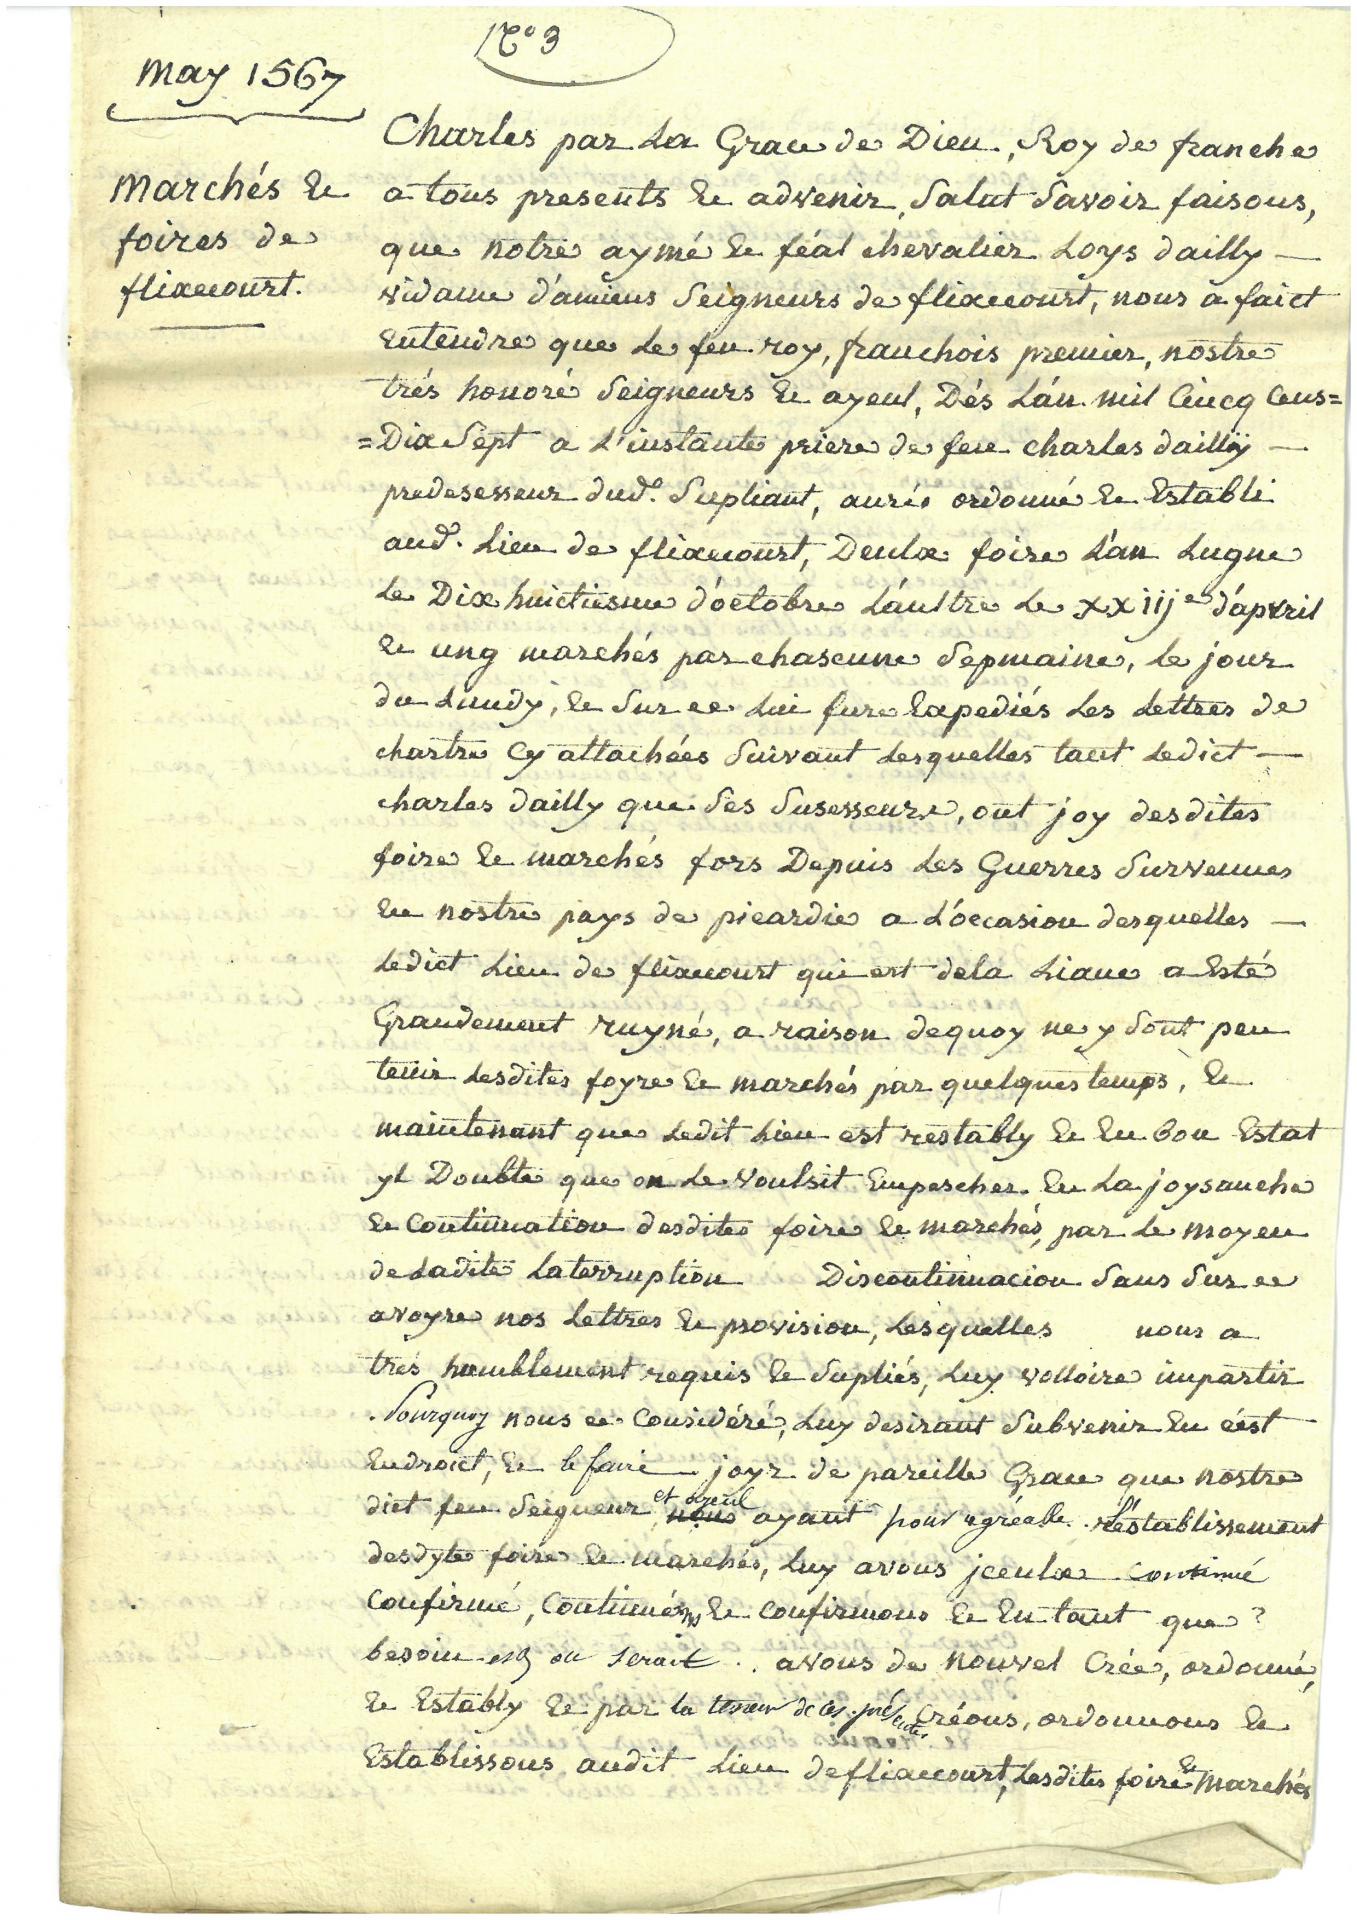 N.º 3
May 1567
Marchés Et
foires de
flixecourt.
Charles par La Grace de Dieu, Roy de franche
a tous presents Et advenir, Salut Savoir faisons,
que notre aymé Et féal chevalier Loys dailly —
vidame d'amiens Seigneurs de flixecourt, nous a faict
Entendre que Le feu roy, franchois premier, nostre
trés honoré Seigneurs Et ayeul, Dés L'án mil Cincq Cens=
=Dix Sept a L'instante priere de feu charles dailly —
predesesseur dud. Supliant, auroit ordonné Et Establi
aud. Lieu de flixecourt, Deulx foire L'an Lugne
Le Dix huictiesme d'octobre L'áultre Le xxiij e d'apvril
Et ung marchés par chascune Sepmaine, Le jour
du Lundy, Et Sur ce Lui fure Expediés Les Lettres de
chartre Cy attachées Suivant Lesquelles tant Ledict —
charles dailly que Ses Susesseurs, ont joy desdites
foire Et marchés fors Depuis Les Guerres Survenues
En nostre pays de picardie a L'occasion desquelles —
Ledict Lieu de flixecourt qui est dela Liaue a Esté
Grandement ruyné, a raison dequoy ne y Sont peu
tenir Lesdites foyre Et marchés par quelques temps, Et
maintenant que Ledit Lieu est restably Et En bon Estat
yl Doubte que on Le Voulsit Empescher En La joysanche
Et Continuation desdites foire Et marchés, par Le moyen
de Ladite Laterruption Discontinuacion Sans Sur ce
avoyre nos Lettres Et provision, Lesquelles nous a
trés humblement requis Et Supliés, Luy volloire impartir
. Pourquoy nous ce Considéré, Luy desirant Subvenir En cést
Endroict, Et le faire joyr de pareille Grace que nostre
dict feu Seigneur, et ayeul nous ayant pour agréable. L'éstablissement
desdyte foire Et marchés, Luy avons jceulx continué
Confirmé, Continuons Et confirmons Et En tant que ?
besoin est ou serait . . avons de nouvel Crée, ordonné,
Et Estably Et par la teneur de ces présentes Créons, ordonnons Et
Establissons audit Lieu de flixecourt, Lesdites foire Et Marchés